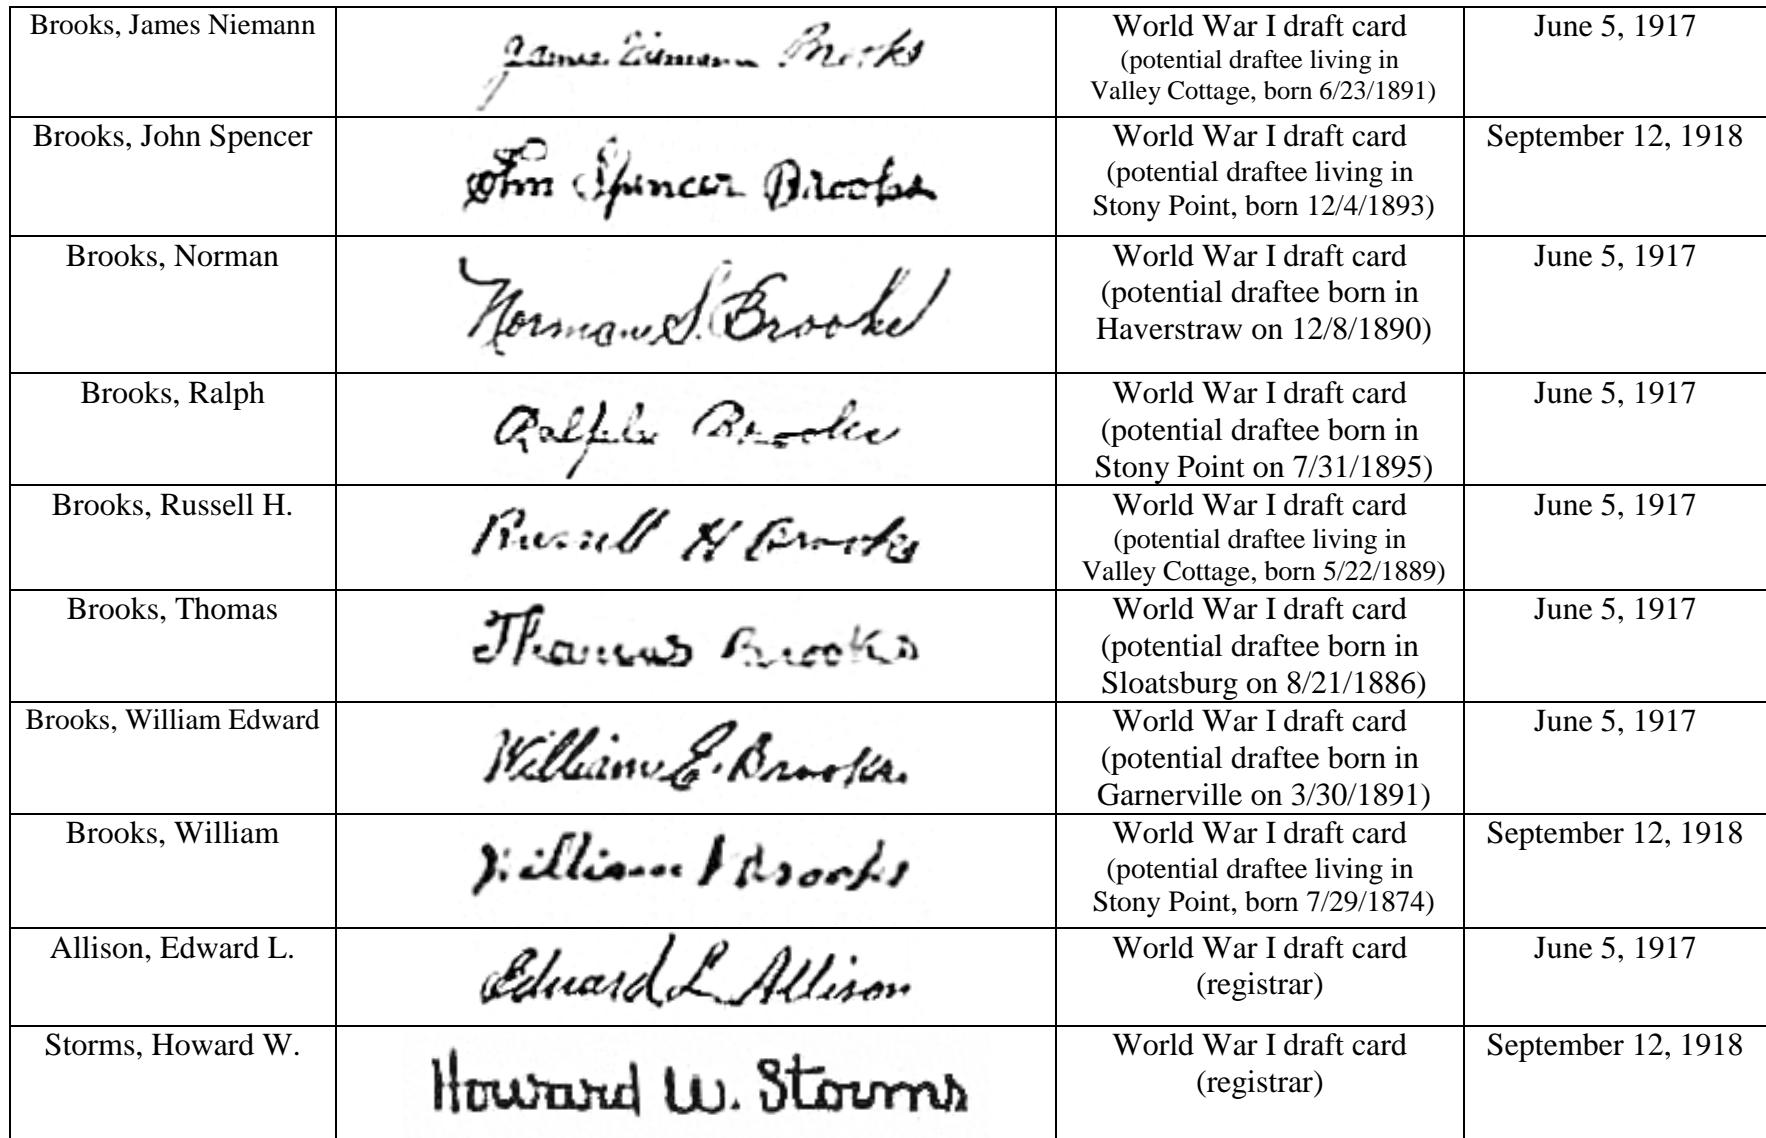 Brooks, James Niemann
James Niemann Brooks
World War I draft card
(potential draftee living in
Valley Cottage, born 6/23/1891)
June 5, 1917
Brooks, John Spencer
John Spencer Brooks
World War I draft card
(potential draftee living in
Stony Point, born 12/4/1893)
September 12, 1918
Brooks, Norman
Norman S. Brooks
World War I draft card
(potential draftee born in
Haverstraw on 12/8/1890)
June 5, 1917
Brooks, Ralph
Ralph Brooks
World War I draft card
(potential draftee born in
Stony Point on 7/31/1895)
June 5, 1917
Brooks, Russell H.
Russell H Brooks
World War I draft card
(potential draftee living in
Valley Cottage, born 5/22/1889)
June 5, 1917
Brooks, Thomas
Thomas Brooks
World War I draft card
(potential draftee born in
Sloatsburg on 8/21/1886)
June 5, 1917
Brooks, William Edward
William E. Brooks.
World War I draft card
(potential draftee born in
Garnerville on 3/30/1891)
June 5, 1917
Brooks, William
William Brooks
World War I draft card
(potential draftee living in
Stony Point, born 7/29/1874)
September 12, 1918
Allison, Edward L.
Edward L Allison
World War I draft card
(registrar)
June 5, 1917
Storms, Howard W.
Howard W. Storms
World War I draft card
(registrar)
September 12, 1918